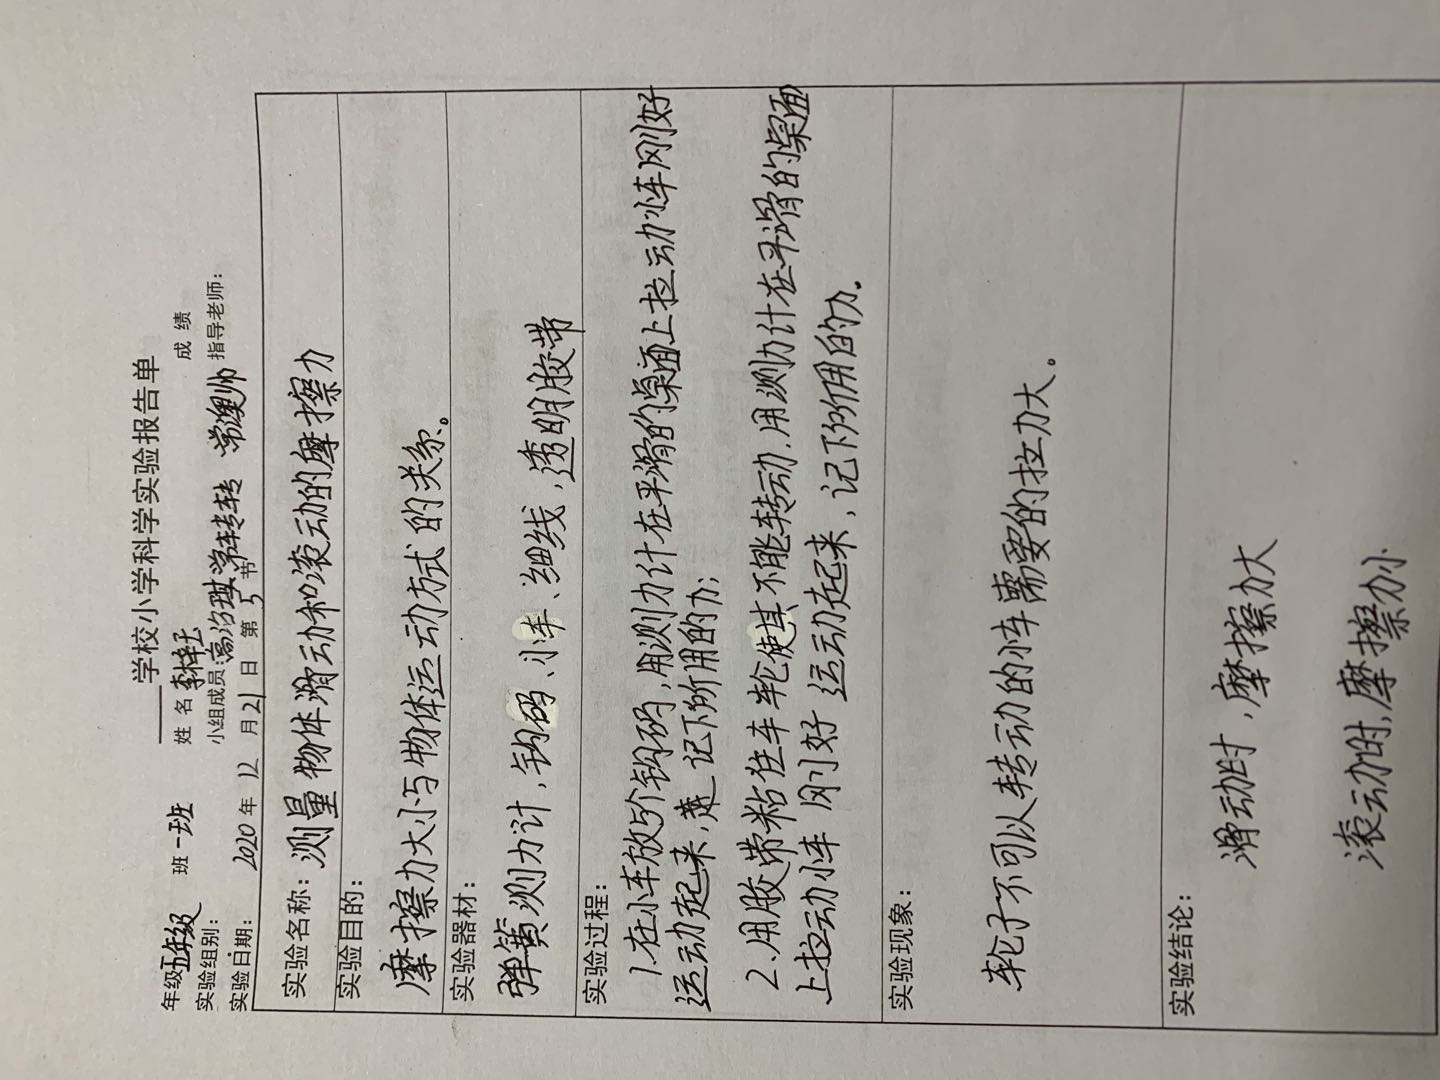 学校小学科学实验报告单
年级五年级 班一班 姓名 成绩
实验组别: 小组成员 指导老师:
实验日期: 2020年12月21日 第5节
实验名称: 测量物体滑动和滚动的摩擦力
实验目的:
摩擦力大小与物体运动方式的关系。
实验器材:
弹簧测力计,钩码、小车、细线,透明胶带
实验过程:
1.在小车放5个钩码,用测力计在平滑的桌面上拉动小车刚好
运动起来,并记下所用的力;
2.用胶带粘住车轮使其不能转动.用测力计在平滑的桌面
上拉动小车 刚好 运动起来,记下所用的力.
实验现象:
轮子不可以转动的小车需要的拉力大。
实验结论:
滑动时,摩擦力大
滚动时,摩擦力小